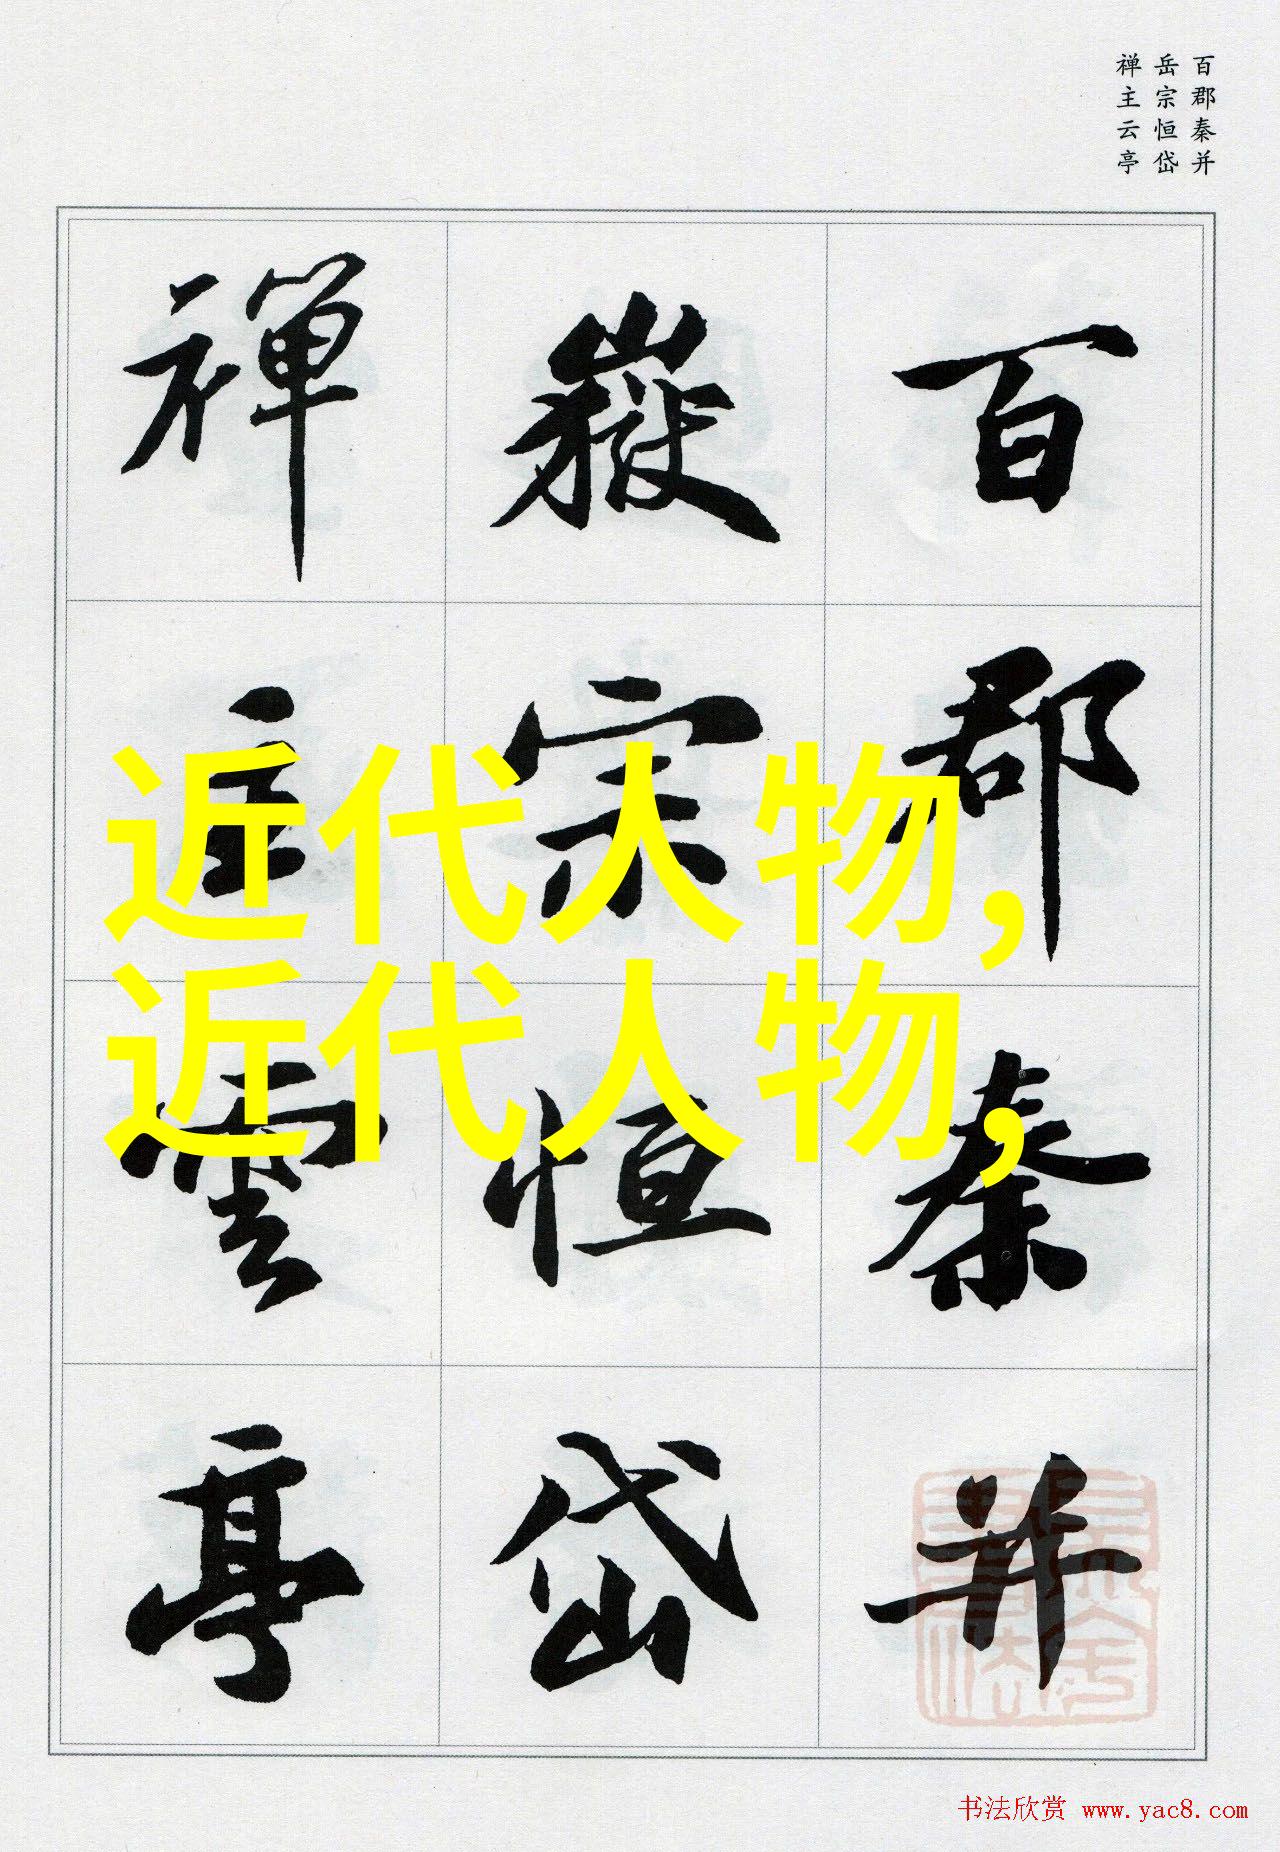 百郡秦并
岳宗恒岱
禅主云亭
百郡秦并
嶽宗恒岱
禪主雲亭
近代人物，
近代人物，
书法欣赏 www.yac8.com